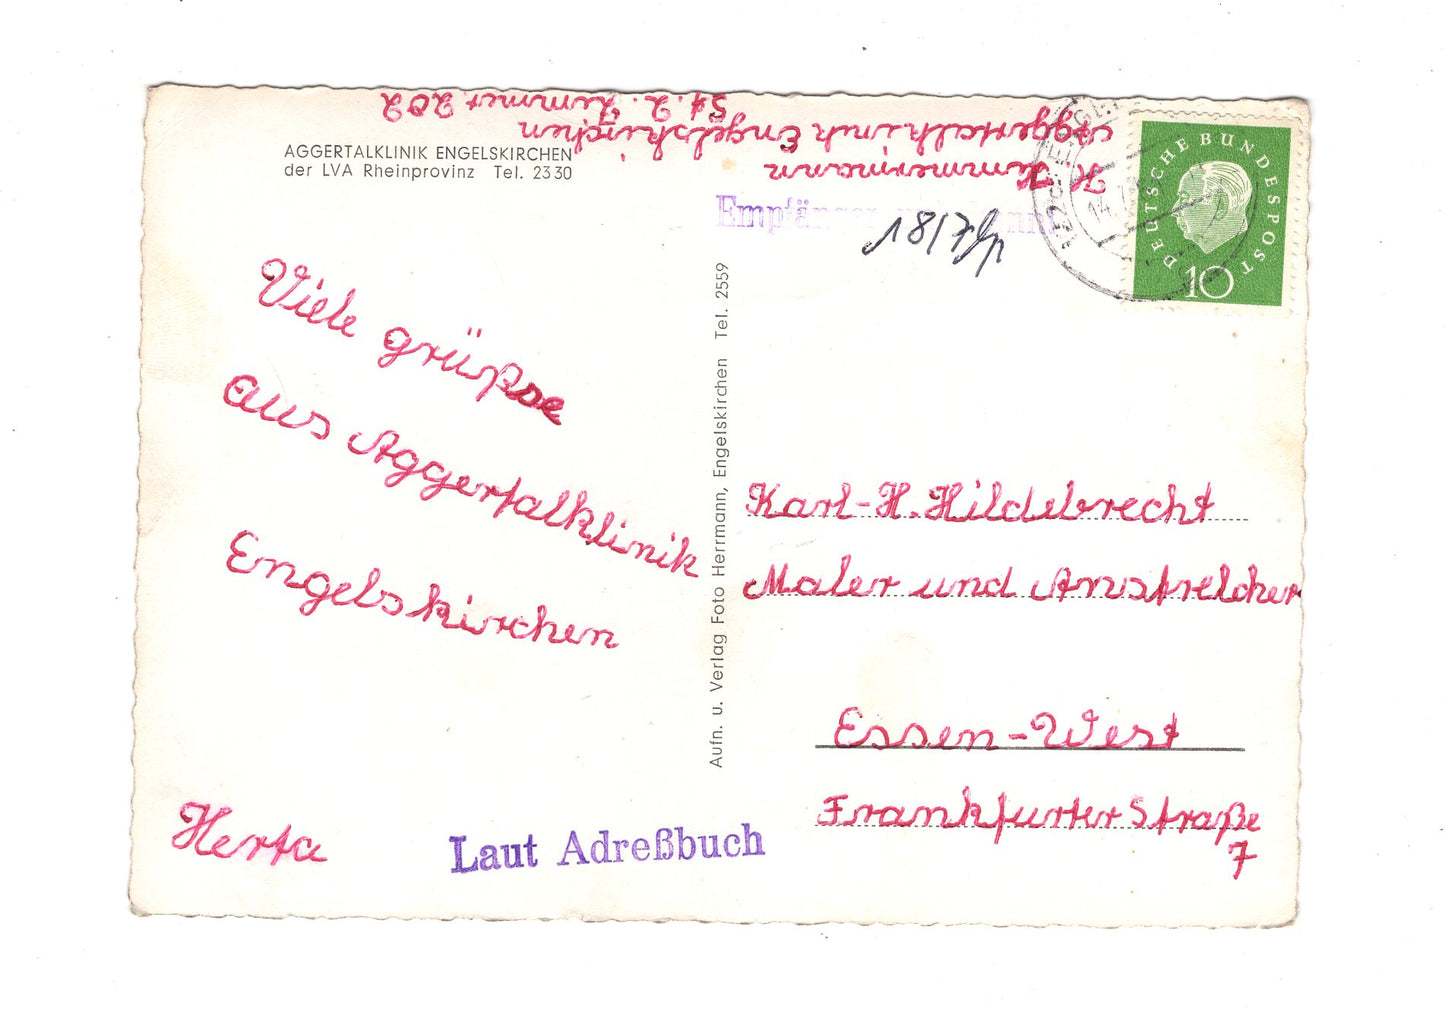 AGGERTALKLINIK ENGELSKIRCHEN
der LVA Rheinprovinz Tel. 2330
H Hammermann
Aggertalklinik Engelskirchen
St. 2. Zimmer 202
Empfänger
18/7
DEUTSCHE BUNDESPOST
10
Viele grüße
aus Aggertalklinik
Engelskirchen
Herta
Laut Adreßbuch
Aufn. u. Verlag Foto Herrmann, Engelskirchen Tel. 2559
Karl-H. Hildebrecht
Maler und Anstreicher
Essen-West
Frankfurter Straße
7